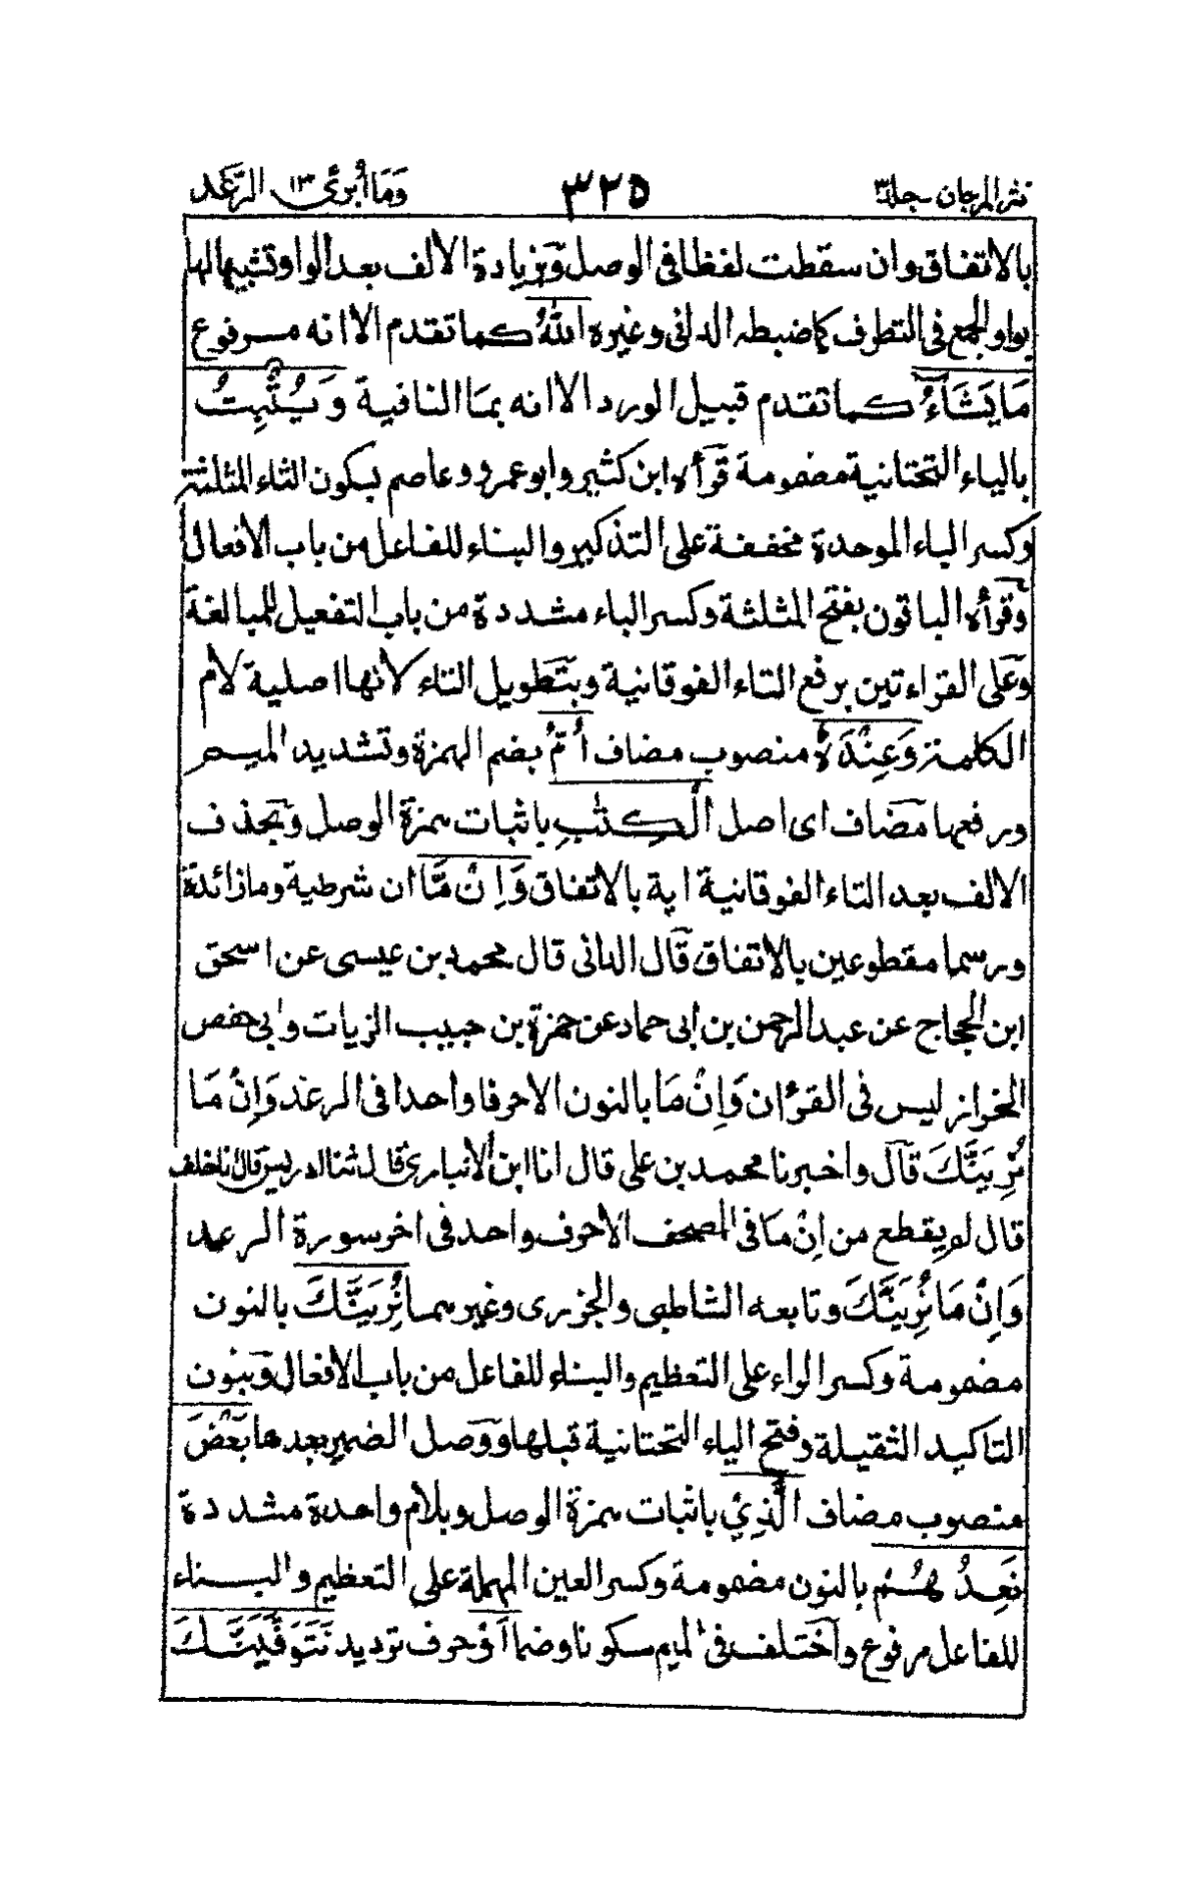 نثر المرجان جلد۳ ۳۲۵ وَمَا أُبَرِّئُ ۱۳ الرّعَد
بالاتفاق وان سقطت لفظا فی الوصل وَبزيادة الالف بعد الواو تشبيها لها
بواو الجمع فی التطرف كما ضبطه الدانی وغيره اللهُ كما تقدم الا انه مرفوع
مَا يَشَآءُ كما تقدم قبيل الورد الا انه بمَا النافية وَيُثْبِتُ
بالياء التحتانية مضمومة قرأه ابن كثير وابو عمرو وعاصم بسكون الثاء المثلثة
وكسر الباء الموحدة مخففة على التذكير والبناء للفاعل من باب الافعال
وقرأه الباقون بفتح المثلثة وكسر الباء مشددة من باب التفعيل للمبالغة
وَعلى القراءتين برفع التاء الفوقانية وبتَطويل التاء لانها اصلية لام
الكلمة وَعِنْدَهٗ منصوب مضاف اُمُّ بضم الهمزة وتشديد الميم
ورفعها مضَاف ای اصل الْكِتٰبِ باثبات همزة الوصل وَبحذف
الالف بعد التاء الفوقانية اية بالاتفاق وَاِنْ مَّا ان شرطية وما زائدة
ورسما مقطوعين بالاتفاق قَال الدانی قال محمد بن عيسى عن اسحق
ابن الحجاج عن عبد الرحمن بن ابی حماد عن حمزة بن حبيب الزيات وابی حفص
الخزاز ليس فی القرْان وَاِنْ مَا بالنون الا حرفا واحدا فی الرعد وَاِنْ مَا
نُرِيَنَّكَ قَال واخبرنا محمد بن علی قال انا ابن الانباری قال ثنا ادريس قال نا خلف
قال لم يقطع من اِنْ مَا فی المصحف الا حرف واحد فی اخر سورة الرعد
وَاِنْ مَا نُرِيَنَّكَ وتابعه الشاطبی والجزری وغيرهما نُرِيَنَّكَ بالنون
مضمومة وكسر الراء على التعظيم والبناء للفاعل من باب الافعال وَبنون
التاكيد الثقيلة وفتح الياء التحتانية قبلها وَوَصل الضمير بعدها بَعْضَ
منصوب مضاف الَّذِیْ باثبات همزة الوصل وبلام واحدة مشددة
نَعِدُهُمْ بالنون مضمومة وكسر العين المهملة على التعظيم والبناء
للفاعل مرفوع واختلف فی الميم سكونا وضما اَوْ حرف ترديد نَتَوَفَّيَنَّكَ